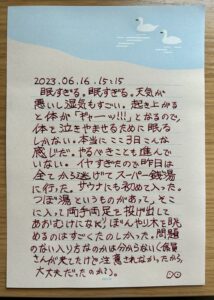 2023.06.16.15:15
眠すぎる。眠すぎる。天気が
悪いし湿気もすごい。起き上がる
と体が「ギャーッ!!!」となるので、
体を泣きやませるために眠る
しかない。本当にここ3日こんな
感じだ。やるべきことも進んで
いない。イヤすぎたので昨日は
全てから逃げてスーパー銭湯
に行った。サウナにも初めて入った。
つぼ湯というものがあって、そこ
に入って両手両足を投げ出して
あおむけになり、ぼんやり木を眺
めるのはすごくたのしかった。問題
のない入り方なのかは分からない(係員
さんが来てたけど注意されなかったから、
大丈夫だったのかも)。